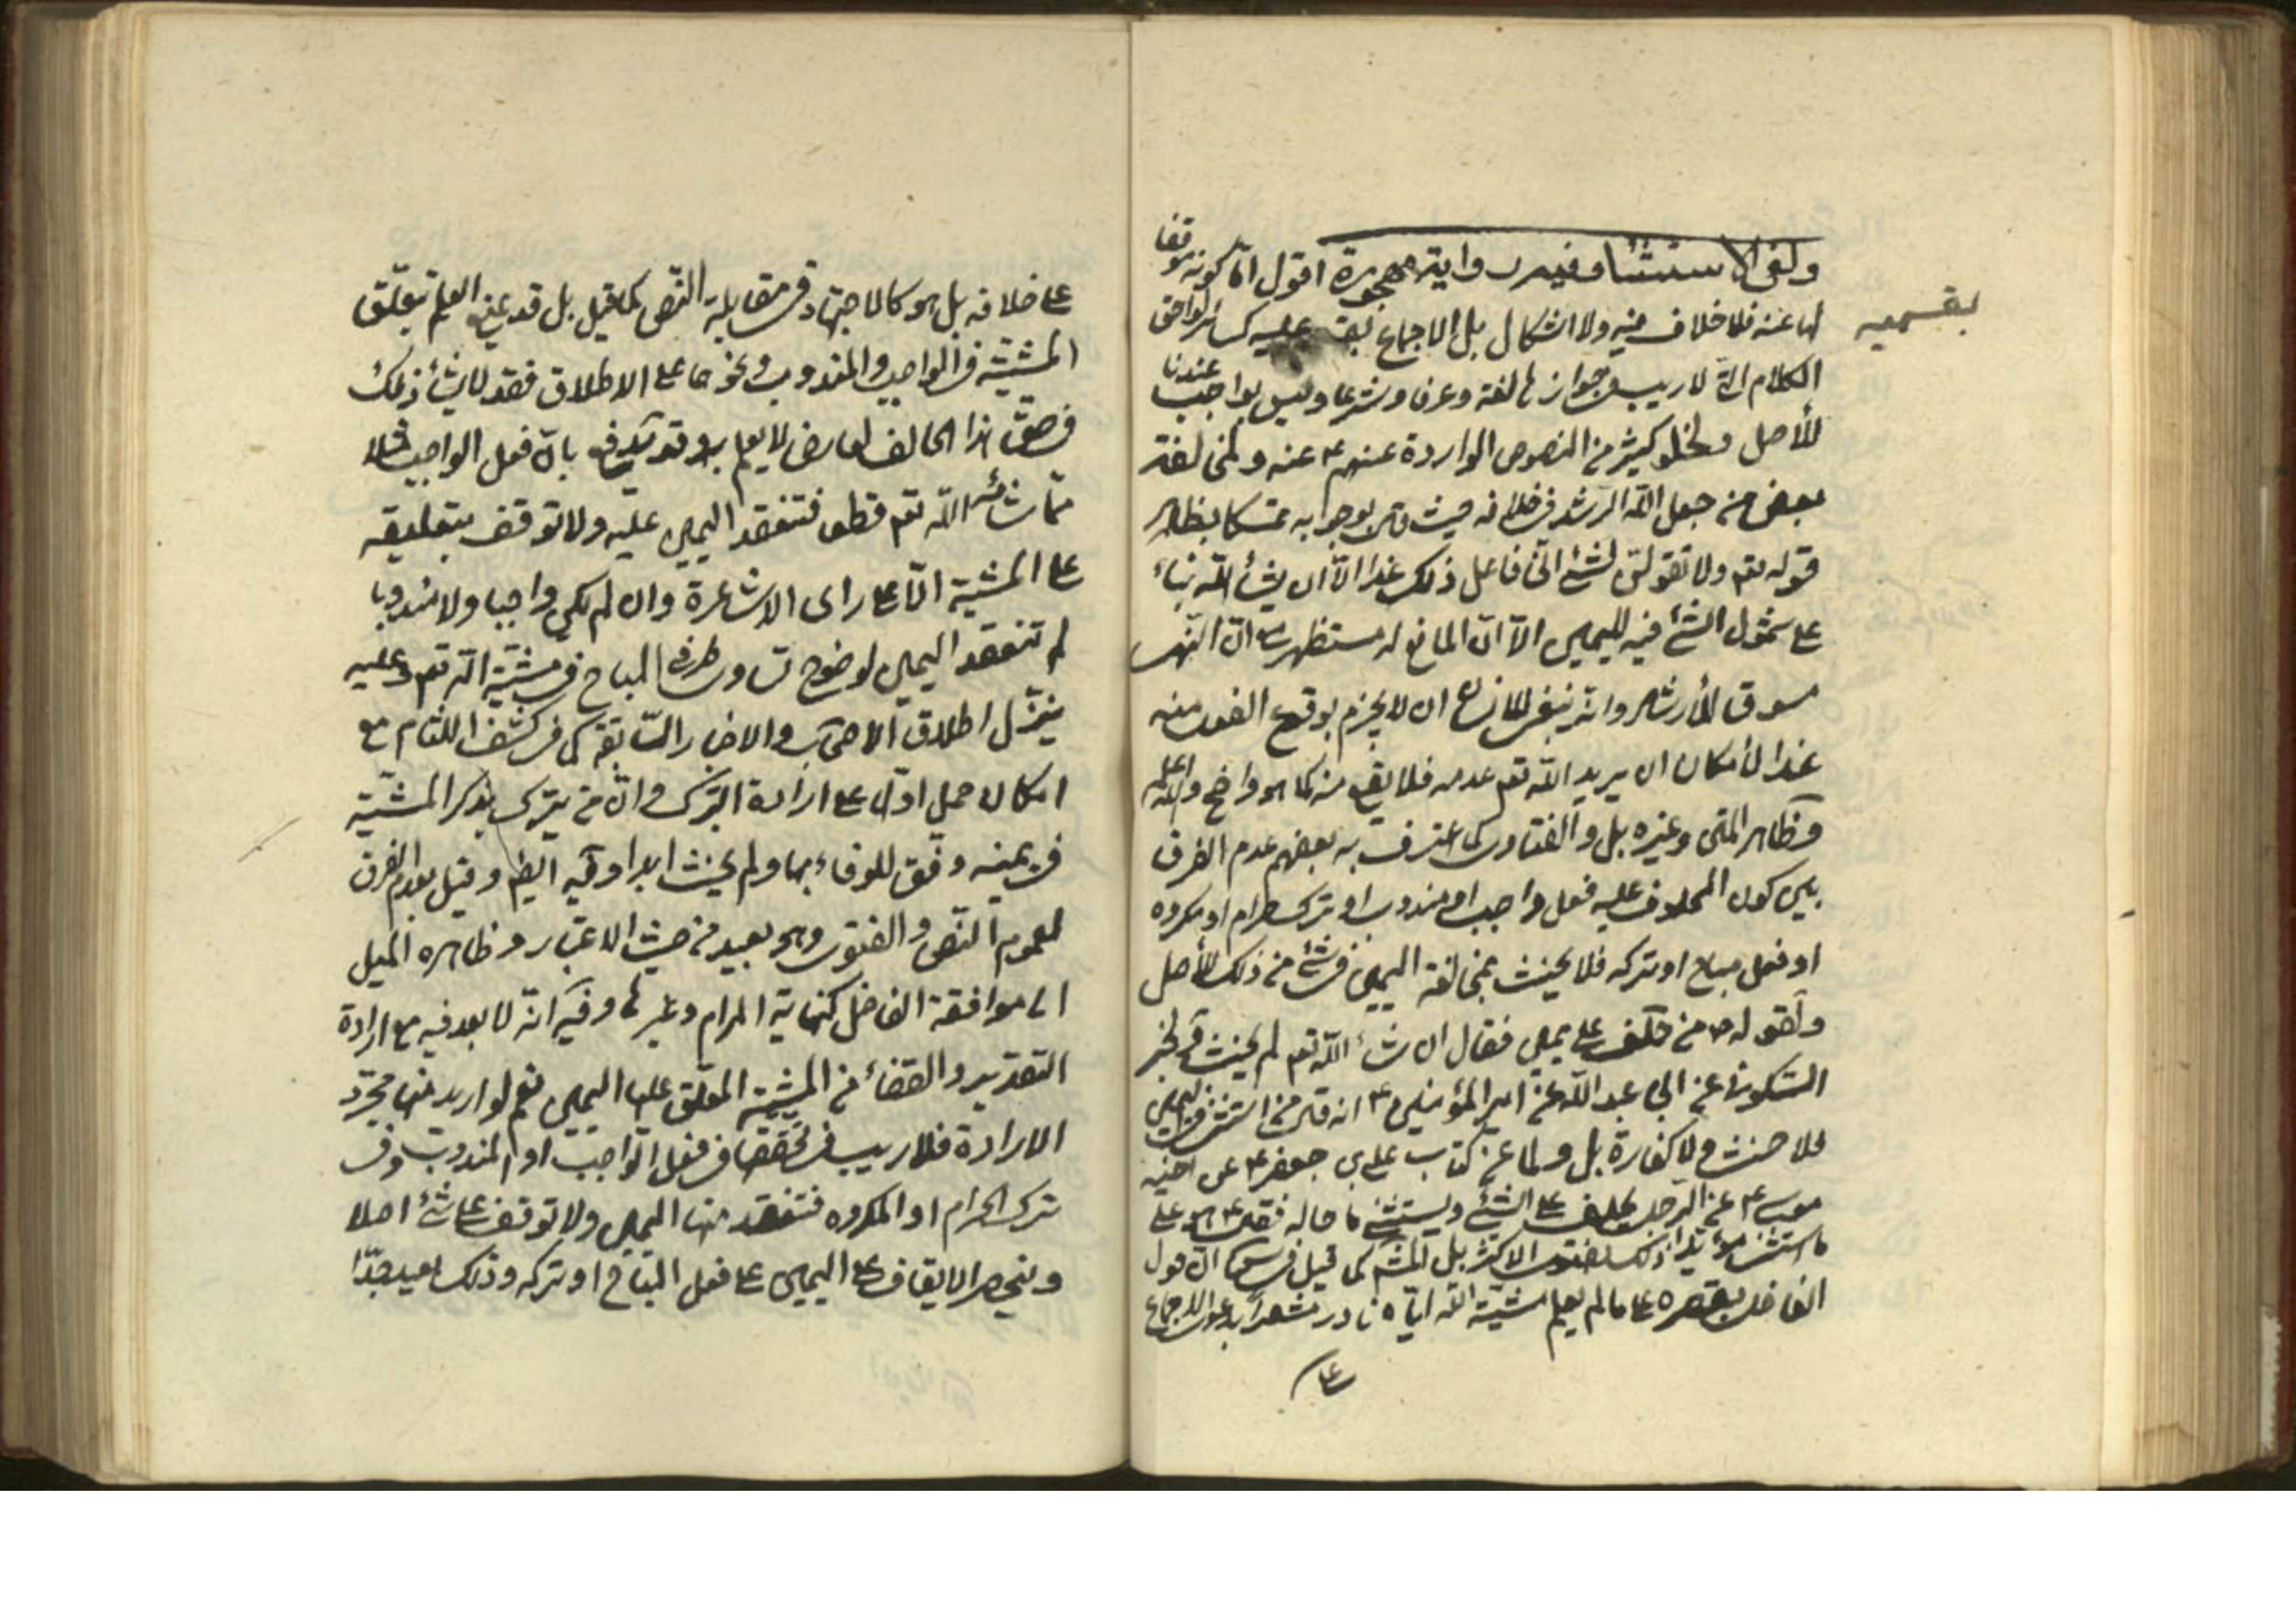 ولغى الاستثناء وفيه رواية مهجورة اقول اما كونه موقفا
لها عنه فلا خلاف فيه ولا اشكال بل الاجماع بقسميه عليه كسائر لواحق
الكلام التى لا ريب فى جوازها لغة وعرفا وشرعا وليس بواجب عندنا
للأصل ولخلو كثير من النصوص الواردة عنهم ع عنه ولمخالفة
بعض من جعل الله الرشد فى خلافه حيث قال بوجوبه تمسكا بظاهر
قوله تعم ولا تقولن لشئ انى فاعل ذلك غدا الا ان يشأ الله بناء
على شمول الشئ فيه لليمين الا ان المانع له مستظهر ان النهى
مسوق للأرشاد وانه ينبغى للانسان ان لا يجزم بوقوع الفعل منه
غدا لأمكان ان يريد الله تعم عدمه فلا يقع منه كما هو واضح والله اعلم
وظاهر المتن وغيره بل والفتاوى كما اعترف به بعضهم عدم الفرق
بين كون المحلوف عليه فعل واجب او مندوب او ترك حرام او مكروه
او فعل مباح او تركه فلا يحنث بمخالفة اليمين فى شئ من ذلك للأصل
ولقوله ص من حلف على يمين فقال ان شاء الله تعم لم يحنث ولخبر
السكونى عن ابى عبد الله عن امير المؤمنين ع انه قال من استثنى فى اليمين
فلا حنث ولا كفارة بل ولما عن كتاب على بن جعفر ع عن اخيه
موسى ع عن الرجل يحلف على الشئ ويستثنى ما حاله فقال ع هو على
ما استثنى مؤيدا ذلك بفتوى الاكثر بل المشهـ كما قيل فى ان قول
الفاضل بقصره على ما لم يعلم مشية الله اياه نادر مشعرا بدعوى الاجماع
على
بقسميه
على خلافه بل هو كالاجتهاد فى مقابلة النص كما قيل بل قد يمنع العلم بتعلق
المشية فى الواجب والمندوب ونحوهما على الاطلاق فقد لا يشأ ذلك
فى حق هذا الحالف لعارض لا يعلم به وقد يدفع بان فعل الواجب مثلا
مما شاء الله تعم قطعا فتنعقد اليمين عليه ولا توقف بتعليقه
على المشية الا على راى الاشاعرة وان لم يكن واجبا ولا مندوبا
لم تنعقد اليمين لوضوح تساوى طرفى المباح فى مشية الله تعم وعليه
ينزل اطلاق الاصحاب والاخبار السابقة كما فى كشف اللثام مع
امكان حمل اول على ارادة التبرك وان من يتبرك بذكر المشية
فى يمينه وفق للوفاء بها ولم يحنث ابدا وفيه ايظ وقيل بعدم الفرق
لعموم النص والفتوى وهو بعيد من حيث الاعتبار وظاهره الميل
الى موافقة الفاضل كنهاية المرام وغيرها وفيه انه لا بعد فيه مع ارادة
التقدير والقضاء من المشية المعلق عليها اليمين نعم لو اريد منها مجرد
الارادة فلا ريب فى تحققها فى فعل الواجب او المندوب وفى
ترك الحرام او المكروه فتنعقد منها اليمين ولا توقف على شئ اصلا
وينحصر الايقاف على اليمين على فعل المباح او تركه وذلك بعيد جدا